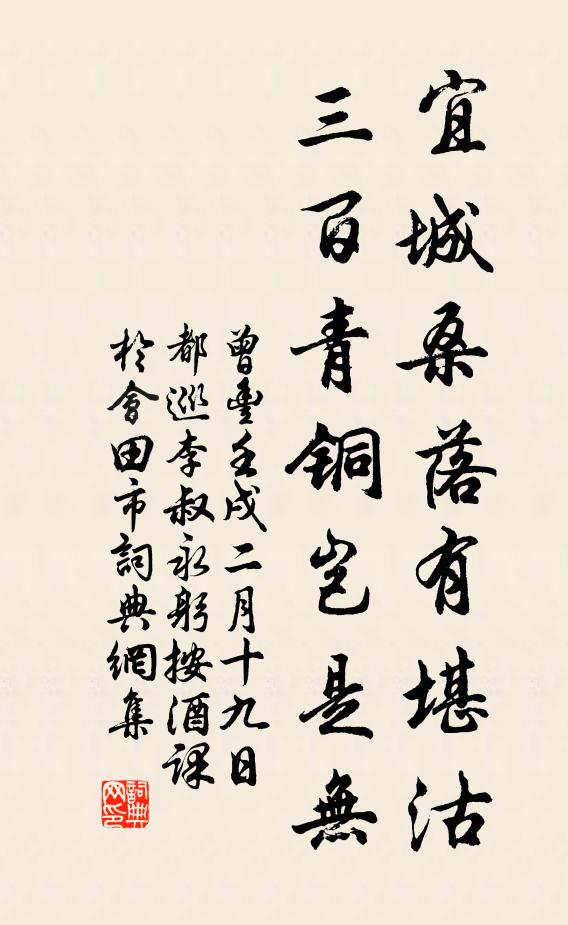 宜城桑落有堪沽
三百青銅豈是無
曾豐壬戌二月十九日
都巡李叔永躬按酒課
於會田市詞典網集
詞典網印